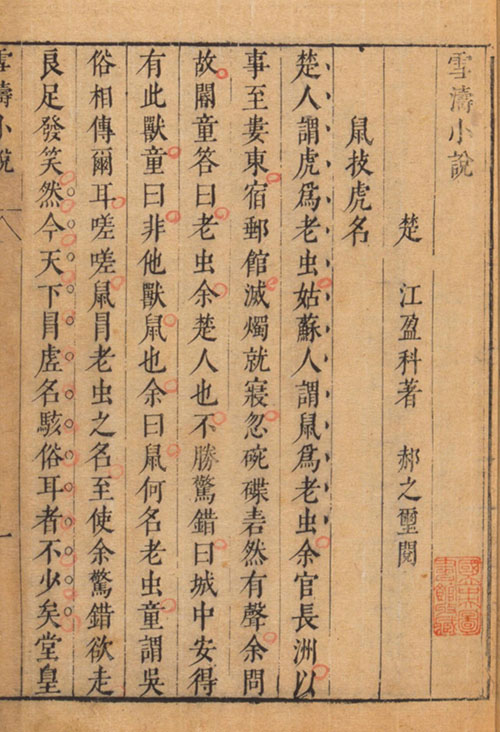 雪濤小說
楚 江盈科著 郝之璽閱
鼠技虎名
楚人謂虎爲老虫姑蘇人謂鼠爲老虫余官長洲以
事至婁東宿郵館滅燭就寢忽碗碟砉然有聲余問
故閽童答曰老虫余楚人也不勝驚錯曰城中安得
有此獸童曰非他獸鼠也余曰鼠何名老虫童謂吳
俗相傳爾耳嗟嗟鼠冐老虫之名至使余驚錯欲走
良足發笑然今天下冐虛名駭俗耳者不少矣堂皇
雪濤小說
一